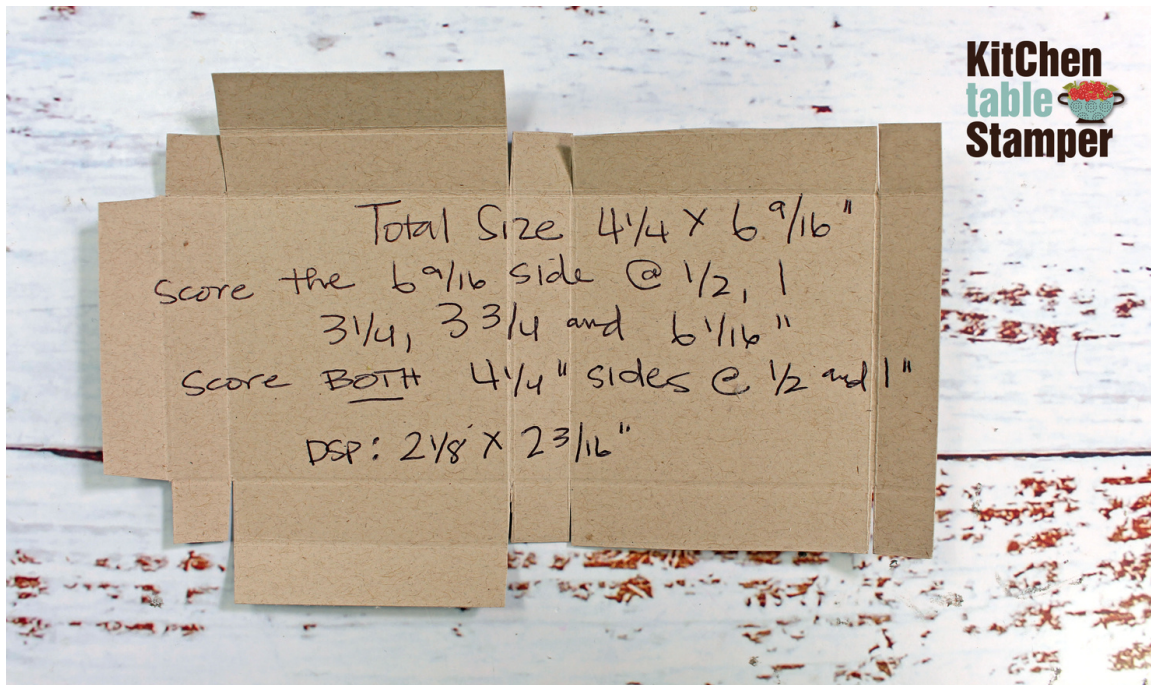 KitChen
table
Stamper
Total Size 4 1/4 X 6 9/16"
Score the 6 9/16 side @ 1/2, 1
3 1/4, 3 3/4 and 6 1/16"
Score BOTH 4 1/4" sides @ 1/2 and 1"
DSP: 2 1/8 X 2 3/16"